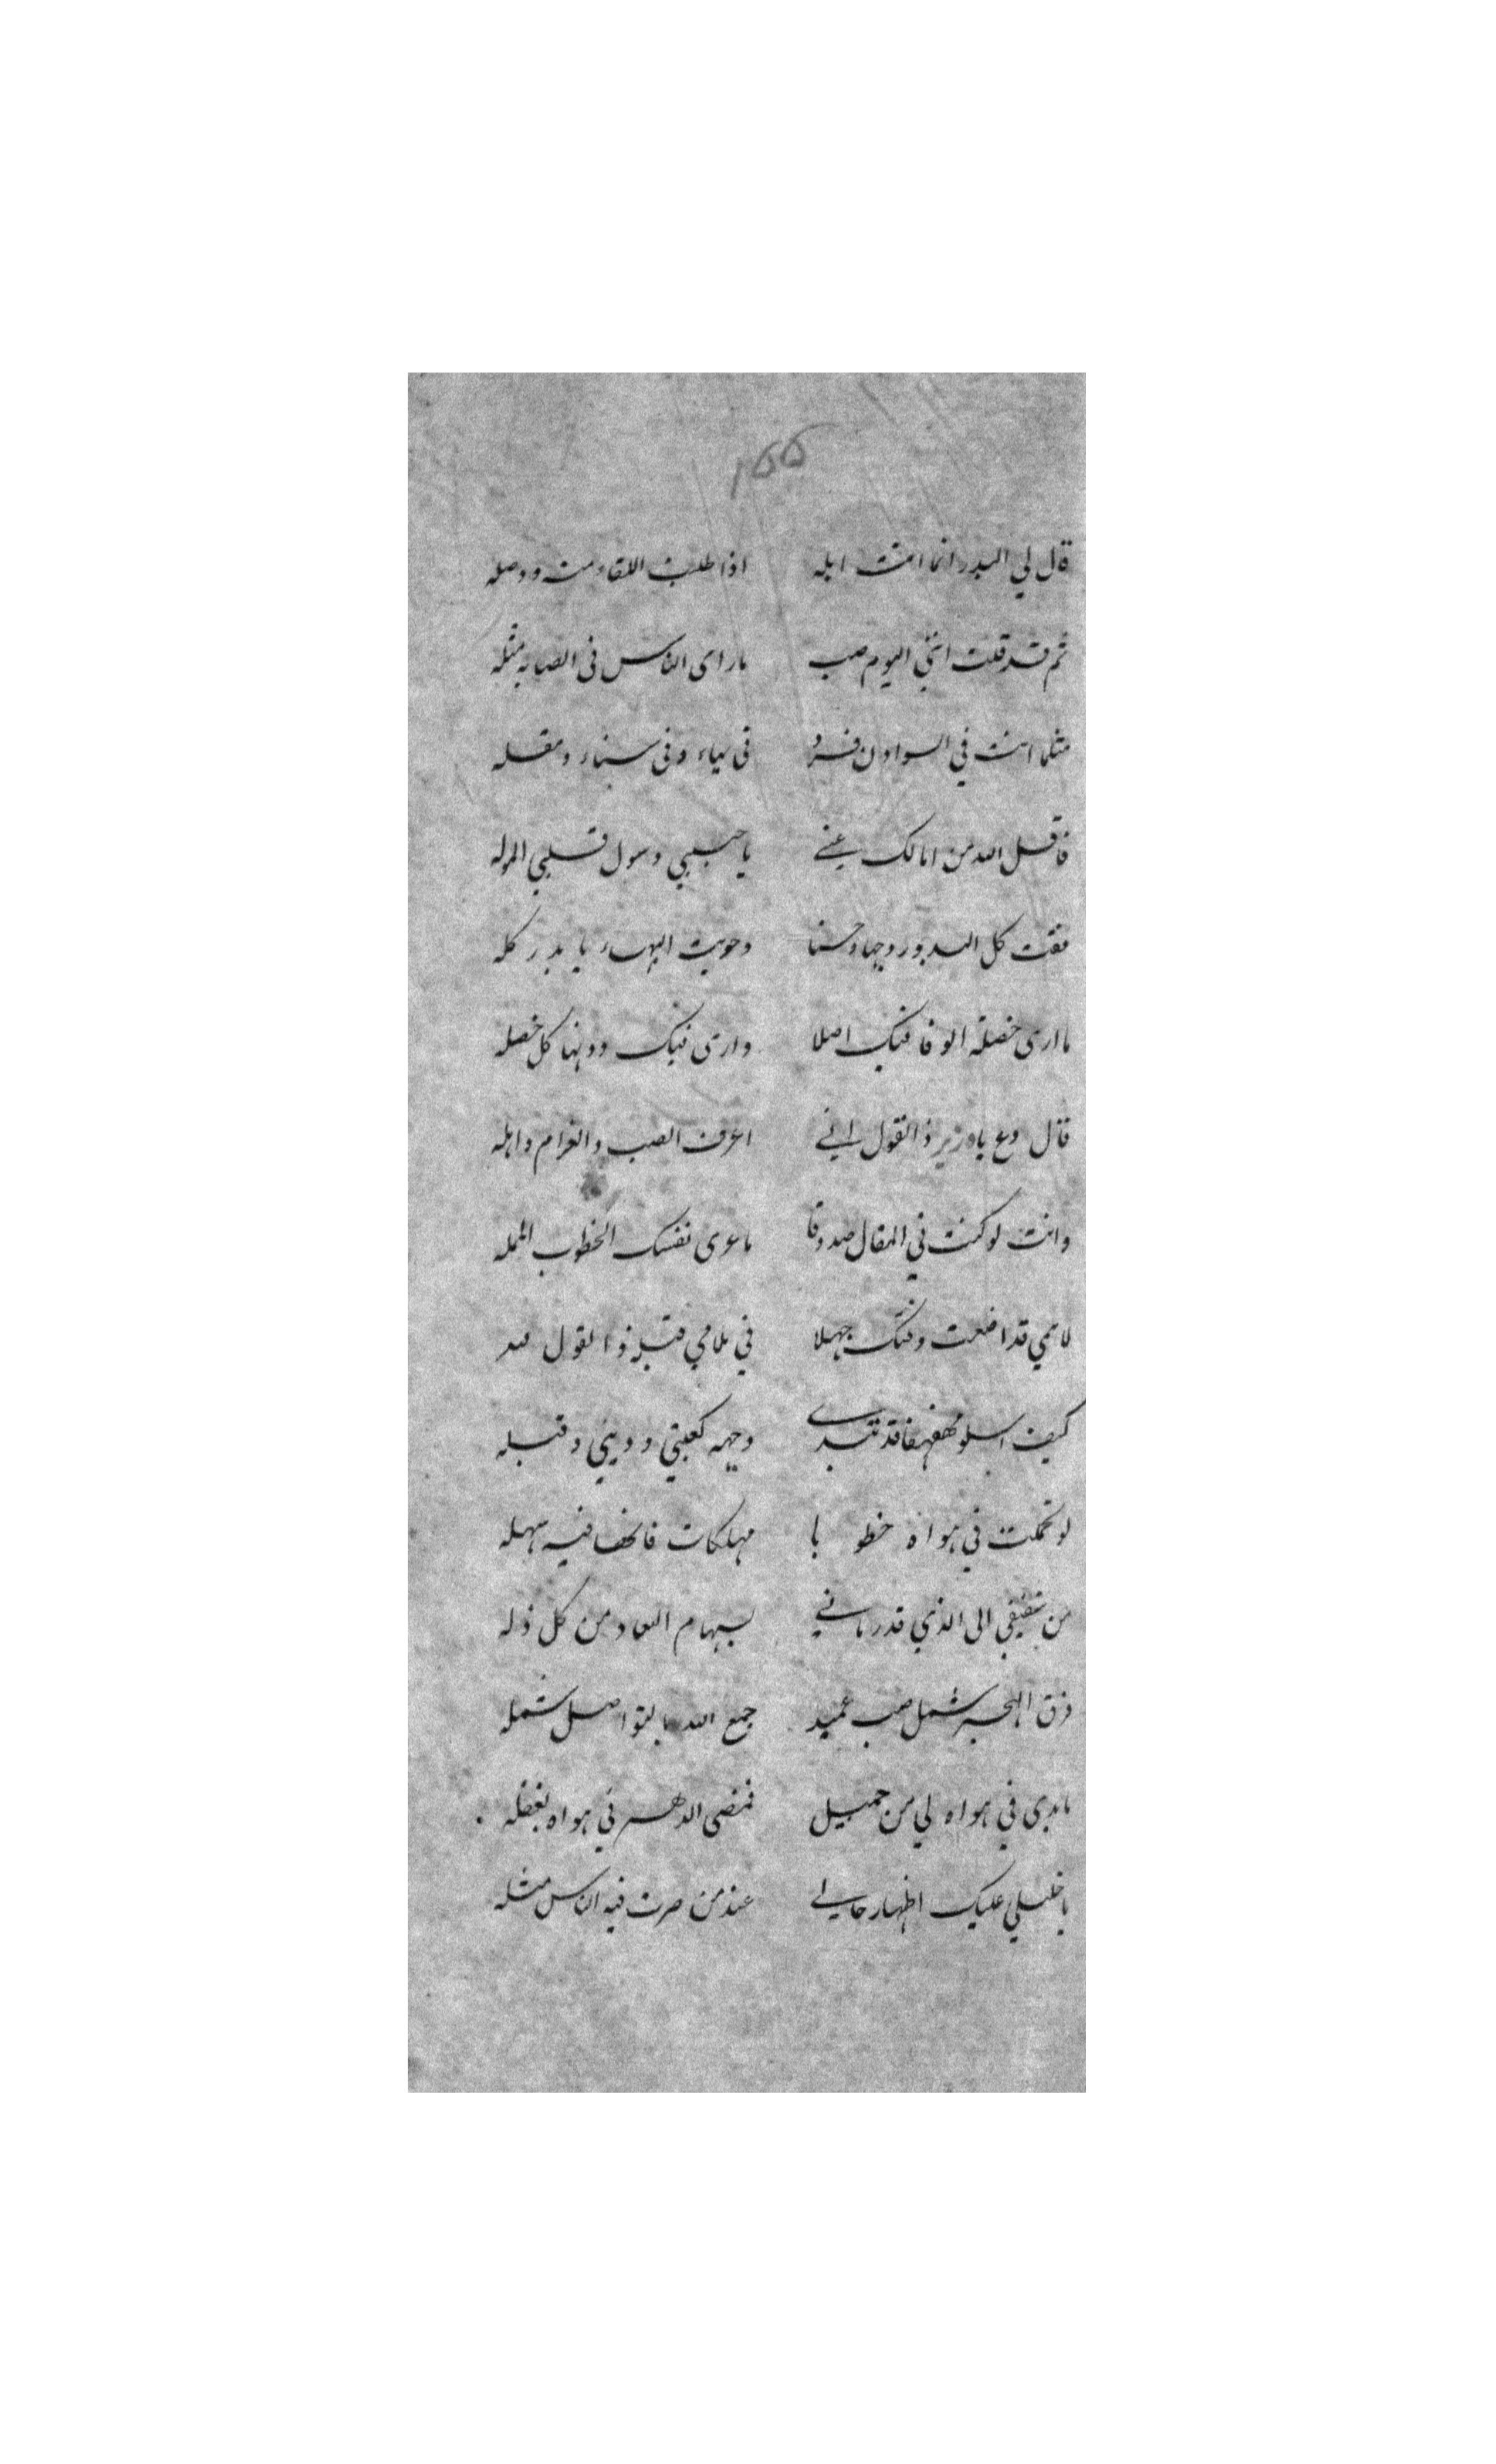 ١٥٥
قال لي البدر انما انت ابله اذا طلبت اللقاء منه ووصله
ثم قد قلت انني اليوم صب ما رأى الناس في الصبابة مثله
مثلما انت في السوا دن فرد في بهاء وفي سناء ومقله
قاتل الله من امالك عني يا حبيبي وسول قلبي الموله
فقت كل البدور وجها وحسنا وحويت البهاء يا بدر كله
ما ارى خصلة الوفا فيك اصلا وارى فيك دونها كل خصله
قال دع يا وزير ذا القول اني اعرف الصب والغرام واهله
وانت لو كنت في المقال صدوقا ما عرى نفسك الخطوب الممله
لائمي قد اضعت وقتك جهلا في ملامي قبله ذا القول لله
كيف اسلو مهفهفا قد تبدى وجهه كعبتي وديني وقبله
لو تحملت في هواه خطوبا مهلكات فانها فيه سهله
من شفيقي الى الذي قد رماني بسهام البعاد من كل ذله
فرق الهجر شمل صب عميد جمع الله بالتواصل شمله
ما بدى في هواه لي من جميل فمضى الدهر في هواه بغفله
يا خليلي عليك اظهار حالي عند من صرت فيه الناس مثله